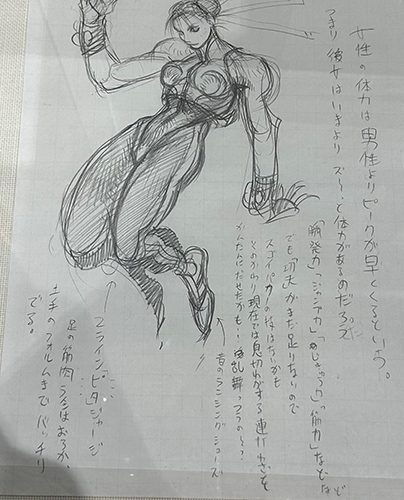 女性の体力は男性よりピークが早くくるという。
つまり彼女はいまより ズ〜っと体力があるのだろう
「瞬発力」「ジャンプ力」「めじゅうりょう」「筋力」などなど
でも「功夫」がまだ足りないので
スゴイパワーの技はないかも
そのかわり現在では息切れがする連けいわざを
かんたんにだせたかも!
昔のランニングシューズ
フライングピタジャージ
足の筋肉うるはおろか、
土手のフォルムまでバッチリ
でる。